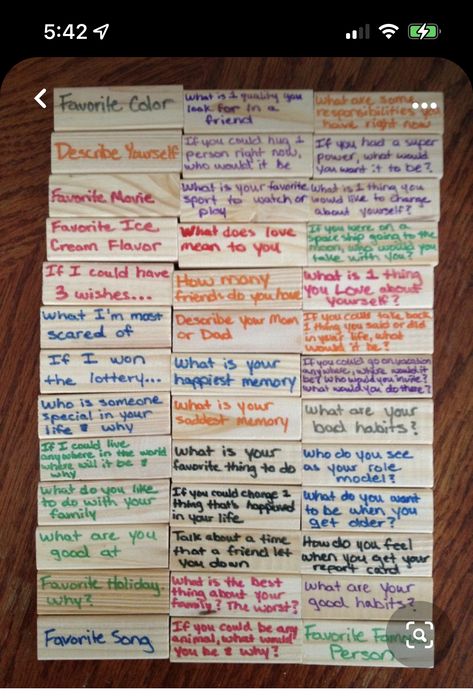 5:42
Favorite Color
What is 1 quality you
look for in a
friend
What are some
responsibilities you
have right now
Describe Yourself
If you could hug 1
person right now,
who would it be
If you had a super
power, what would
you want it to be?
Favorite Movie
What is your favorite
sport to watch or
play
What is 1 thing you
would like to change
about yourself?
Favorite Ice
Cream Flavor
What does love
mean to you
If you were on a
space ship going to the
moon, who would you
take with you?
If I could have
3 wishes...
How many
friends do you have
What is 1 thing
you Love about
yourself?
What I'm most
scared of
Describe your Mom
or Dad
If you could take back
1 thing you said or did
in your life, what
would it be?
If I won
the lottery...
What is your
happiest memory
If you could go on vacation
anywhere, where would it
be? Who would you invite?
What would you do there?
Who is someone
special in your
life & why
What is your
saddest memory
What are your
bad habits?
If I could live
anywhere in the world
where will it be &
why
What is your
favorite thing to do
Who do you see
as your role
model?
What do you like
to do with your
family
If you could change 1
thing that's happened
in your life
What do you want
to be when you
get older?
What are you
good at
Talk about a time
that a friend let
you down
How do you feel
when you get your
report card
Favorite Holiday
Why?
What is the best
thing about your
family? The worst?
What are your
good habits?
Favorite Song
If you could be any
animal, what would
you be & why?
Favorite
Person